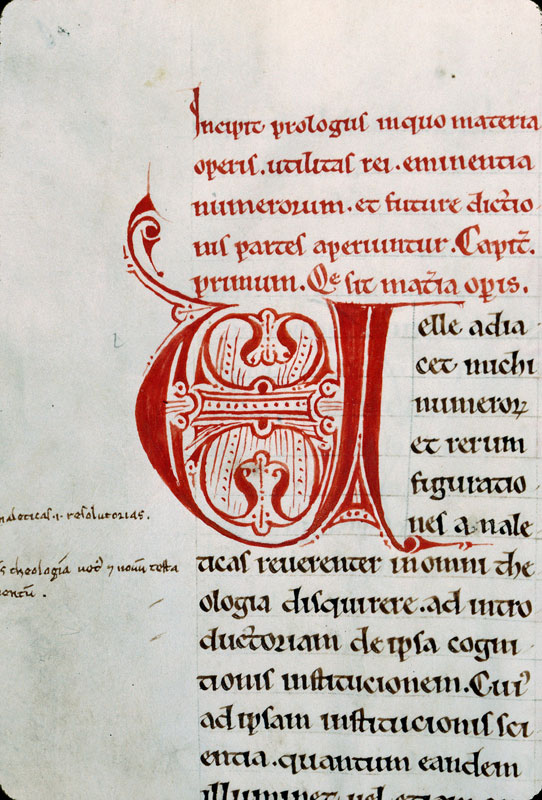 Incipit prologus in quo materia
operis. utilitas rei. eminentia
numerorum. et future dictio
nis partes aperiuntur. Capit̃.
primum. Qe sit mat̃ia op̃is.
Uelle adia
cet michi
numeroꝝ
et rerum
figuratio
nes anale
ticas reuerenter in omni the
ologia disquirere. ad intro
ductoriam de ipsa cogni
tionis institucionem. Cuiꝰ
ad ipsam institucionis sci
entia. quantum eandem
illuminet uel etiam
naleticas .i. resolutorias.
s theologiã uet̃ ⁊ nouũ testa
entũ.